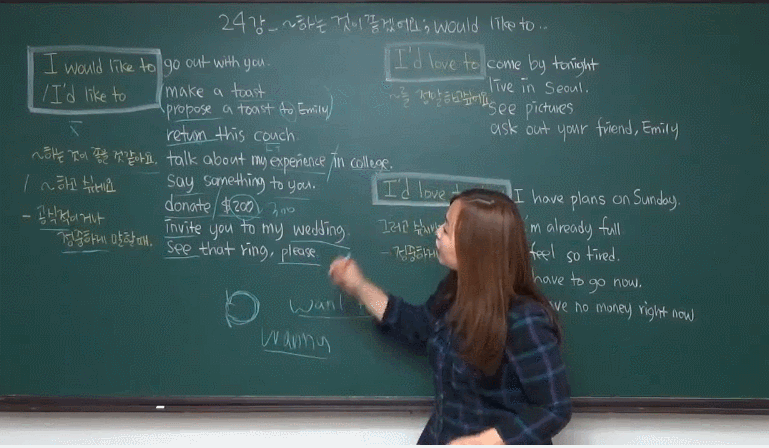 24강_ ~하는 것이 좋겠어요; would like to..
I would like to
/I'd like to
go out with you.
make a toast
propose a toast to Emily
return this couch
talk about my experience in college.
say something to you.
donate $200
invite you to my wedding.
see that ring, please.
~하는 것이 좋을 것같아요.
/ ~하고 싶네요
- 공식적이거나
정중하게 말할때.
want
wanna
I'd love to
~를 정말하고싶어요
come by tonight
live in Seoul.
see pictures
ask out your friend, Emily
I'd love
그러고 싶
- 정중하게
I have plans on Sunday.
already full
feel so tired.
have to go now.
no money right now